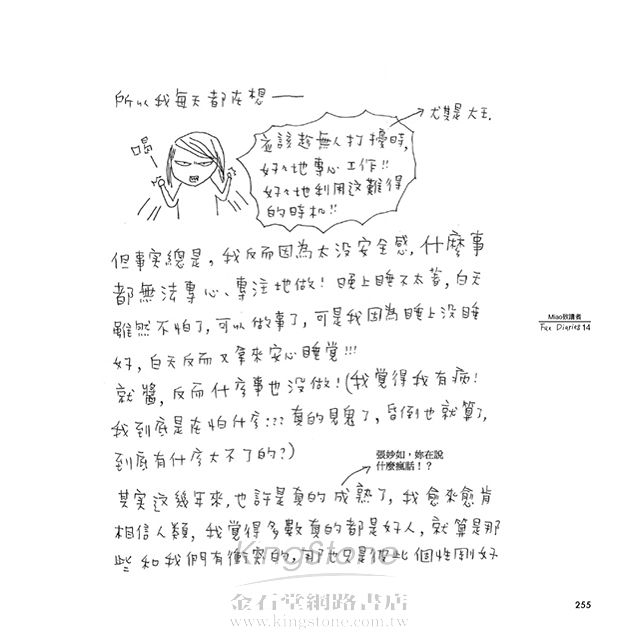 所以我每天都在想——
尤其是大王.
喝—
應該趁無人打擾時,
好好地專心工作!!
好好地利用这難得
的時机!!
但事实總是,我反而因為太没安全感,什麼事
都無法專心、專注地做!晚上睡不太著,白天
雖然不怕了,可以做事了,可是我因為晚上没睡
好,白天反而又拿來安心睡覚!!!
就醬,反而什么事也没做!(我覺得我有病!
我到底是在怕什么???真的見鬼了,昏倒也就算了,
到底有什么大不了的?)
張妙如,妳在說
什麼瘋話!?
其实这幾年來,也許是真的成熟了,我愈來愈肯
相信人類,我覺得多數真的都是好人,就算是那
些和我們有衝突的,也只是彼此個性剛好
Miao致讀者
Fax Diaries 14
KingStone
金石堂網路書店
www.kingstone.com.tw
255